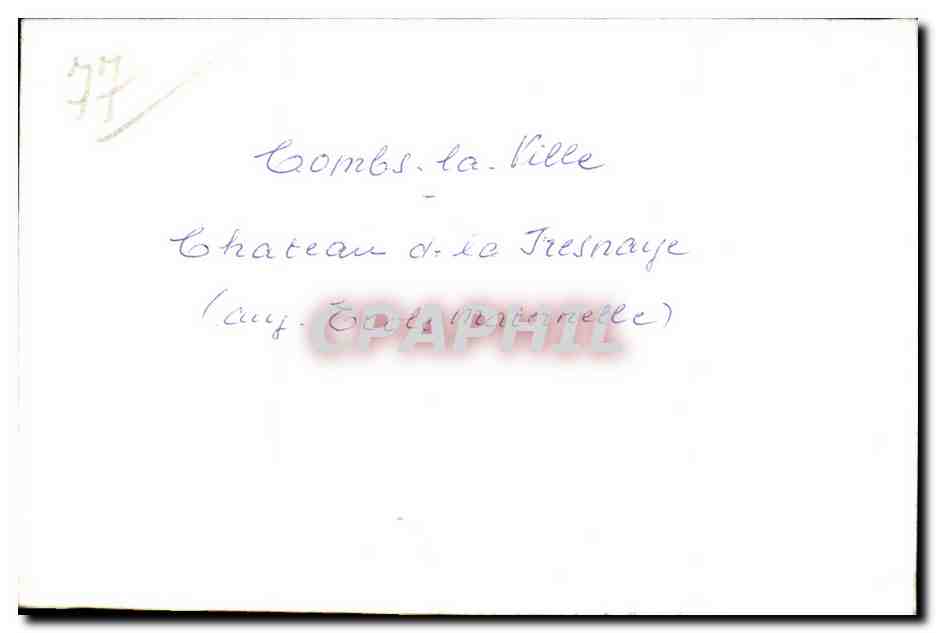 77
Combs-la-Ville
-
Chateau d. la Fresnaye
(auj. Ecole Maternelle)
CPAPHIL